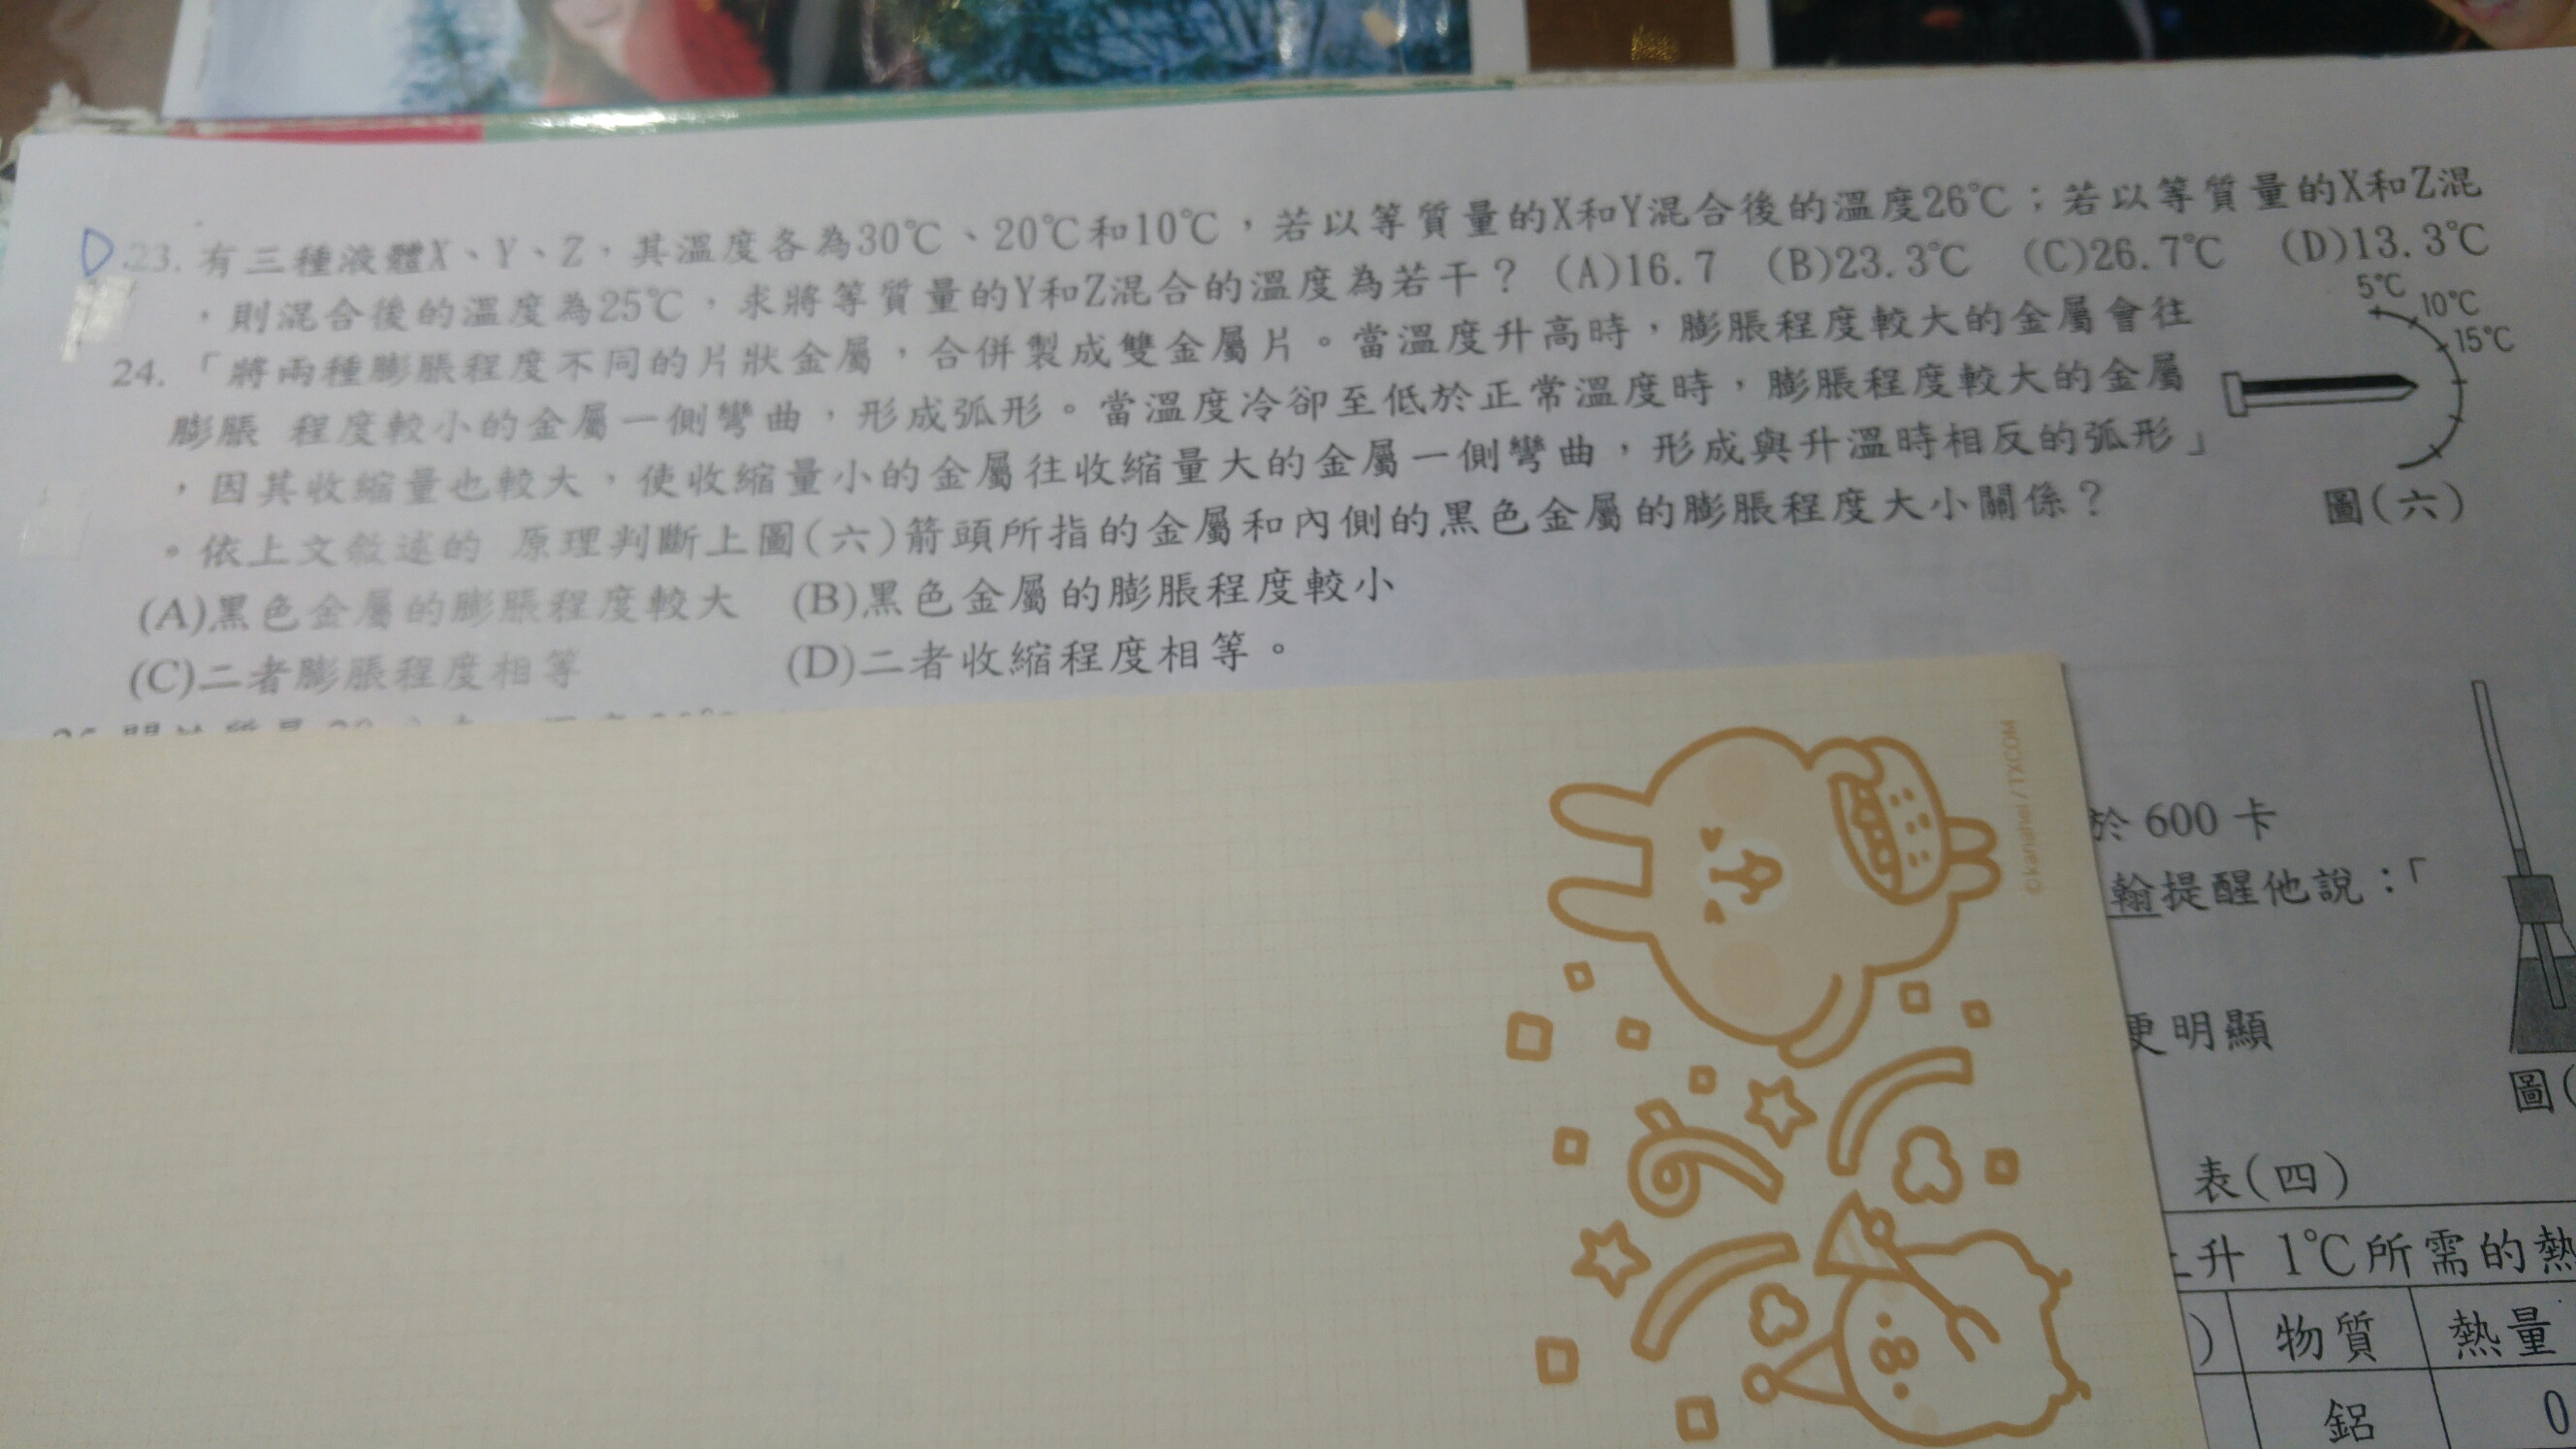 D
23. 有三種液體X、Y、Z，其溫度各為30℃、20℃和10℃，若以等質量的X和Y混合後的溫度26℃；若以等質量的X和Z混
，則混合後的溫度為25℃，求將等質量的Y和Z混合的溫度為若干？ (A)16.7 (B)23.3℃ (C)26.7℃ (D)13.3℃
24.「將兩種膨脹程度不同的片狀金屬，合併製成雙金屬片。當溫度升高時，膨脹程度較大的金屬會往
膨脹 程度較小的金屬一側彎曲，形成弧形。當溫度冷卻至低於正常溫度時，膨脹程度較大的金屬
，因其收縮量也較大，使收縮量小的金屬往收縮量大的金屬一側彎曲，形成與升溫時相反的弧形」
。依上文敘述的 原理判斷上圖(六)箭頭所指的金屬和內側的黑色金屬的膨脹程度大小關係？
(A)黑色金屬的膨脹程度較大 (B)黑色金屬的膨脹程度較小
(C)二者膨脹程度相等 (D)二者收縮程度相等。
5℃
10℃
15℃
圖(六)
©kanahei/TXCOM
於 600 卡
翰提醒他說：「
更明顯
圖(
表(四)
上升 1℃所需的熱
) 物質 熱量
鋁 0